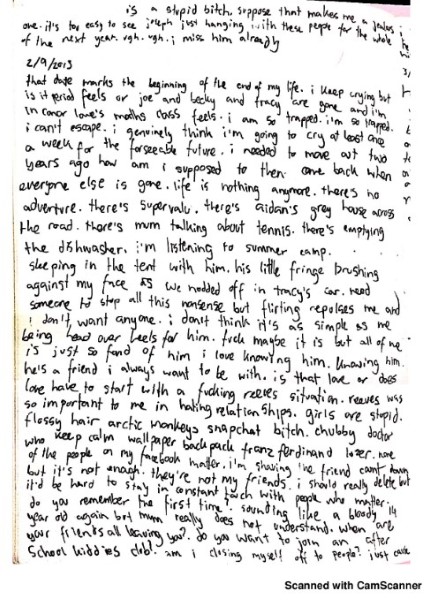 is a stupid bitch. suppose that makes me a jealous
one. it's too easy to see joseph just hanging with these people for the whole
of the next year. ugh. ugh. i miss him already
2/9/2013
that date marks the beginning of the end of my life. i keep crying but
is it period feels or joe and becky and tracy are gone and i'm
in conor love's maths class feels. i am so trapped. i'm so trapped.
i can't escape. i genuinely think i'm going to cry at least once
a week for the forseeable future. i needed to move out two
years ago how am i supposed to then come back when
everyone else is gone. life is nothing anymore. there's no
adventure. there's supervalu. there's aidan's grey house across
the road. there's mum talking about tennis. there's emptying
the dishwasher. i'm listening to summer camp.
sleeping in the tent with him. his little fringe brushing
against my face as we nodded off in tracy's car. need
someone to stop all this nonsense but flirting repulses me and
i don't want anyone. i don't think it's as simple as me
being head over heels for him. fuck maybe it is but all of me
is just so fond of him i love knowing him. knowing him.
he's a friend i always want to be with. is that love or does
love have to start with a fucking reeves situation. reeves was
so important to me in hating relationships. girls are stupid.
flossy hair arctic monkeys snapchat bitch. chubby doctor
who keep calm wallpaper backpack franz ferdinand loser. none
of the people on my facebook matter. i'm shaving the friend count down
but it's not enough. they're not my friends. i should really delete but
it'd be hard to stay in constant touch with people who matter.
do you remember the first time? sounding like a bloody 14
year old again but mum really does not understand. when are
your friends all leaving you? do you want to join an after
school kiddies club? am i closing myself off to people? just cause
Scanned with CamScanner